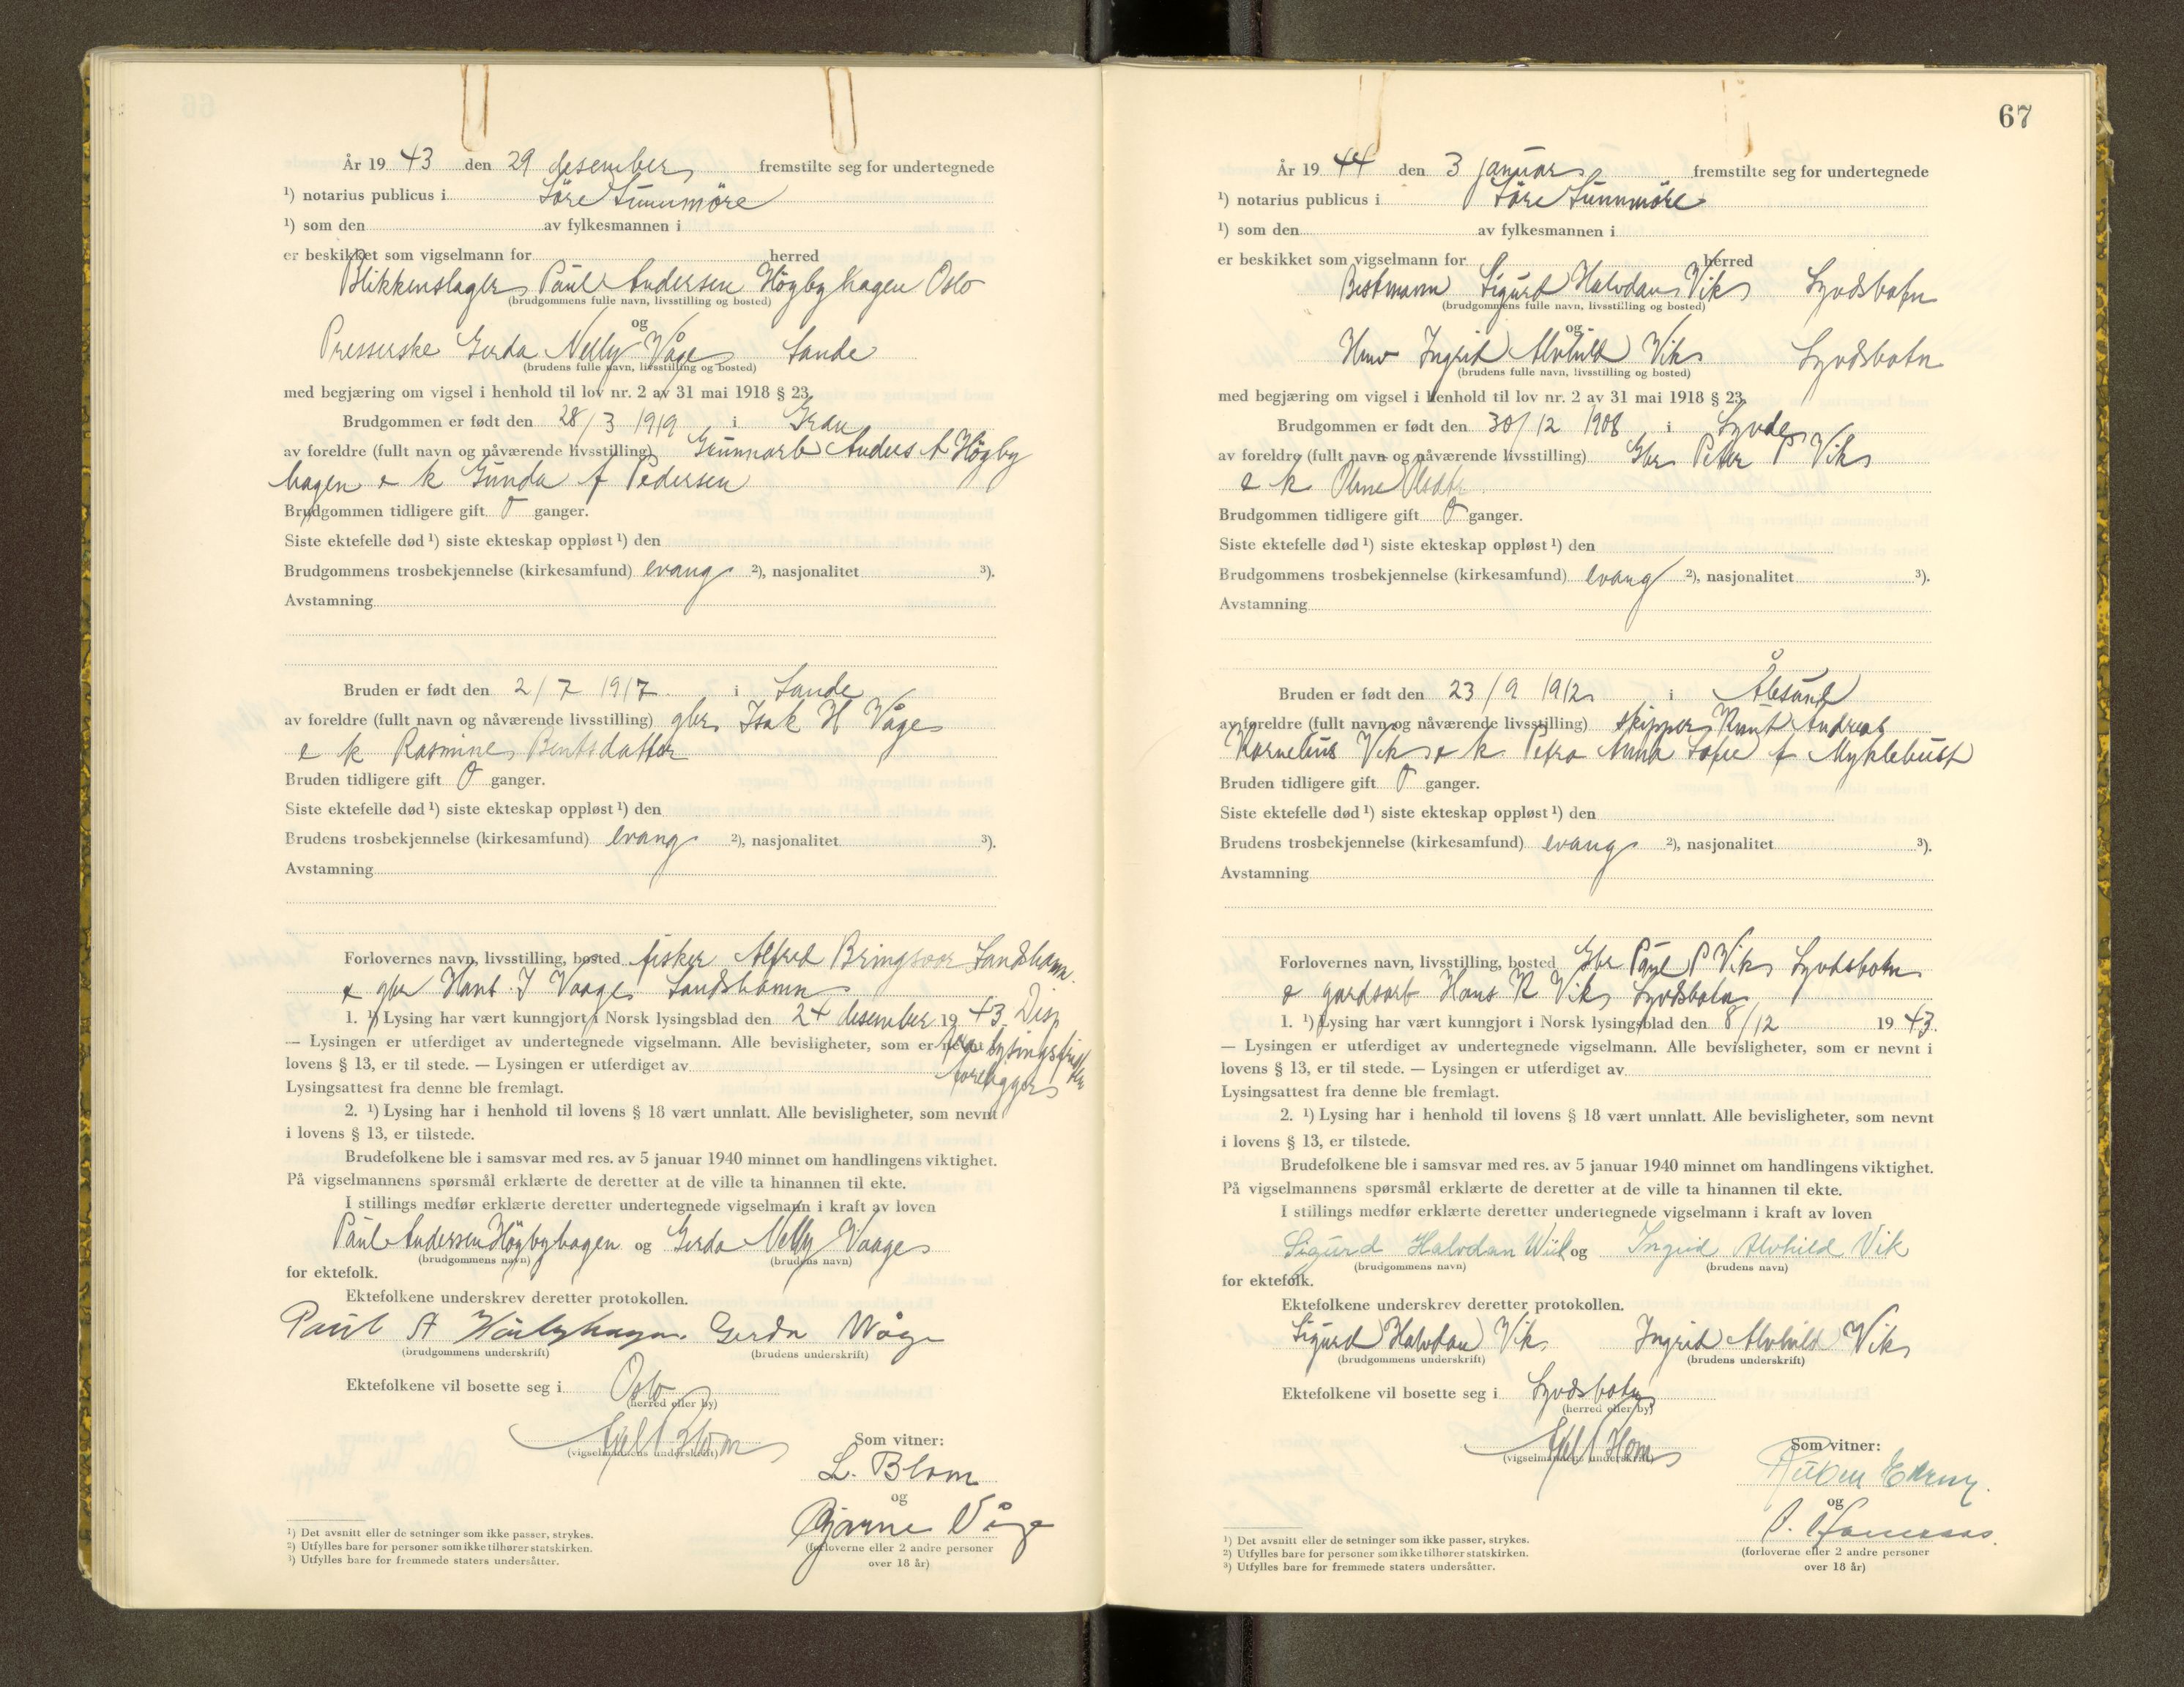 År 19 43 den 29 desember fremstilte seg for undertegnede
¹) notarius publicus i Söre Sunnmöre
¹) som den av fylkesmannen i
er beskikket som vigselmann for herred
Blikkenslager Paul Andersen Högbyhagen Oslo
(brudgommens fulle navn, livsstilling og bosted)
og
Presserske Gerda Nelly Våge Sande
(brudens fulle navn, livsstilling og bosted)
med begjæring om vigsel i henhold til lov nr. 2 av 31 mai 1918 § 23.
Brudgommen er født den 28/3 1919 i Gran
av foreldre (fullt navn og nåværende livsstilling) Anders A Högby
hagen & k Gunda f Pedersen
Brudgommen tidligere gift 0 ganger.
Siste ektefelle død ¹) siste ekteskap oppløst ¹) den
Brudgommens trosbekjennelse (kirkesamfund) evang ²), nasjonalitet ³).
Avstamning
Bruden er født den 2/7 1917 i Sande
av foreldre (fullt navn og nåværende livsstilling) gbr Isak H Våge
& k Rasmine Bentsdatter
Bruden tidligere gift 0 ganger.
Siste ektefelle død ¹) siste ekteskap oppløst ¹) den
Brudens trosbekjennelse (kirkesamfund) evang ²), nasjonalitet ³).
Avstamning
Forlovernes navn, livsstilling, bosted fisker Alfred Bringsvor Sandshamn
& gbr Hans I Vaage Sandshamn
1. ¹) Lysing har vært kunngjort i Norsk lysingsblad den 24 desember 19 43. Disp
— Lysingen er utferdiget av undertegnede vigselmann. Alle bevisligheter, som er nevnt i
fra lysingsfrist
lovens § 13, er til stede. — Lysingen er utferdiget av foreligger
Lysingsattest fra denne ble fremlagt.
2. ¹) Lysing har i henhold til lovens § 18 vært unnlatt. Alle bevisligheter, som nevnt
i lovens § 13, er tilstede.
Brudefolkene ble i samsvar med res. av 5 januar 1940 minnet om handlingens viktighet.
På vigselmannens spørsmål erklærte de deretter at de ville ta hinannen til ekte.
I stillings medfør erklærte deretter undertegnede vigselmann i kraft av loven
Paul Andersen Högbyhagen og Gerda Nelly Vaage
(brudgommens navn) (brudens navn)
for ektefolk.
Ektefolkene underskrev deretter protokollen.
Paul A Gerda Våge
(brudgommens underskrift) (brudens underskrift)
Ektefolkene vil bosette seg i Oslo
(herred eller by)
(vigselmannens underskrift)
Som vitner:
L. Blom
og
Bjarne Våge
(forloverne eller 2 andre personer
over 18 år)
¹) Det avsnitt eller de setninger som ikke passer, strykes.
²) Utfylles bare for personer som ikke tilhører statskirken.
³) Utfylles bare for fremmede staters undersåtter.
67
År 19 44 den 3 januar fremstilte seg for undertegnede
¹) notarius publicus i Söre Sunnmöre
¹) som den av fylkesmannen i
er beskikket som vigselmann for herred
Bestmann Sigurd Halvdan Vik Syvdsbotn
(brudgommens fulle navn, livsstilling og bosted)
og
Ingrid Alvhild Vik Syvdsbotn
(brudens fulle navn, livsstilling og bosted)
med begjæring om vigsel i henhold til lov nr. 2 av 31 mai 1918 § 23.
Brudgommen er født den 30/12 1908 i Syvde
av foreldre (fullt navn og nåværende livsstilling) Gbr Peter P Vik
& k Oline Olsdtr
Brudgommen tidligere gift 0 ganger.
Siste ektefelle død ¹) siste ekteskap oppløst ¹) den
Brudgommens trosbekjennelse (kirkesamfund) evang ²), nasjonalitet ³).
Avstamning
Bruden er født den 23/9 1912 i Ålesund
av foreldre (fullt navn og nåværende livsstilling) skipper Knut Andreas
Kornelius Vik & k Petra Anna Sofie f Myklebust
Bruden tidligere gift 0 ganger.
Siste ektefelle død ¹) siste ekteskap oppløst ¹) den
Brudens trosbekjennelse (kirkesamfund) evang ²), nasjonalitet ³).
Avstamning
Forlovernes navn, livsstilling, bosted Gbr Paul P Vik Syvdsbotn
& gardsarb Hans K Vik Syvdsbotn
1. ¹) Lysing har vært kunngjort i Norsk lysingsblad den 8/12 19 43.
— Lysingen er utferdiget av undertegnede vigselmann. Alle bevisligheter, som er nevnt i
lovens § 13, er til stede. — Lysingen er utferdiget av
Lysingsattest fra denne ble fremlagt.
2. ¹) Lysing har i henhold til lovens § 18 vært unnlatt. Alle bevisligheter, som nevnt
i lovens § 13, er tilstede.
Brudefolkene ble i samsvar med res. av 5 januar 1940 minnet om handlingens viktighet.
På vigselmannens spørsmål erklærte de deretter at de ville ta hinannen til ekte.
I stillings medfør erklærte deretter undertegnede vigselmann i kraft av loven
Sigurd Halvdan Wiik og Ingrid Alvhild Vik
(brudgommens navn) (brudens navn)
for ektefolk.
Ektefolkene underskrev deretter protokollen.
Sigurd Halvdan Vik Ingrid Alvhild Vik
(brudgommens underskrift) (brudens underskrift)
Ektefolkene vil bosette seg i Syvdsbotn
(herred eller by)
(vigselmannens underskrift)
Som vitner:
og
(forloverne eller 2 andre personer
over 18 år)
¹) Det avsnitt eller de setninger som ikke passer, strykes.
²) Utfylles bare for personer som ikke tilhører statskirken.
³) Utfylles bare for fremmede staters undersåtter.